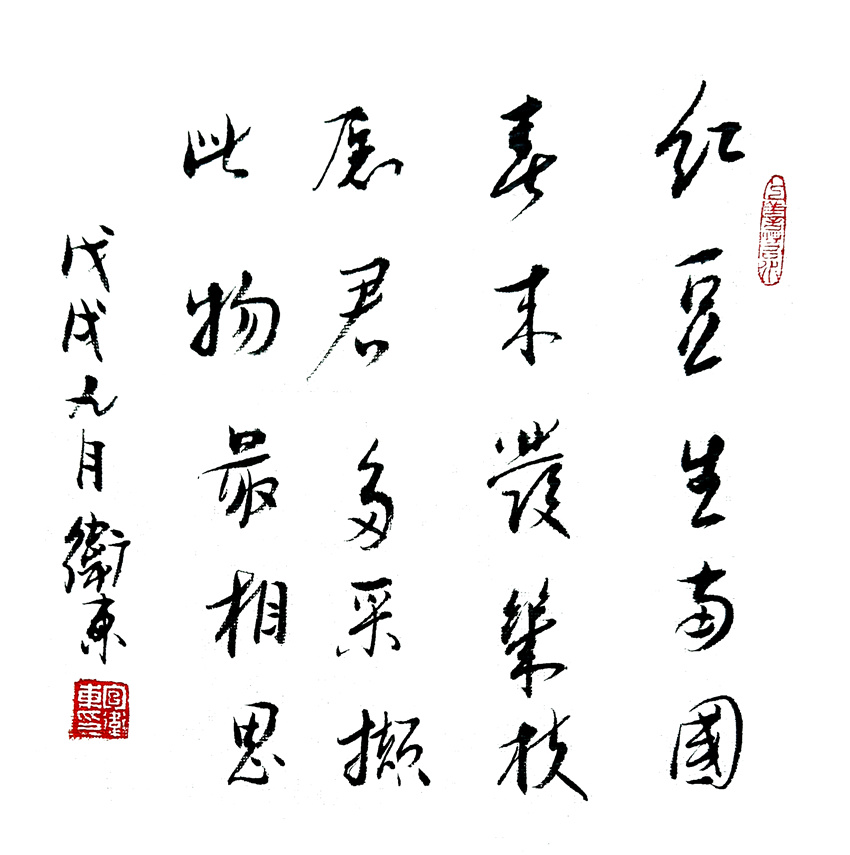 紅豆生南國
春来發幾枝
愿君多采擷
此物最相思
戊戌九月衛東